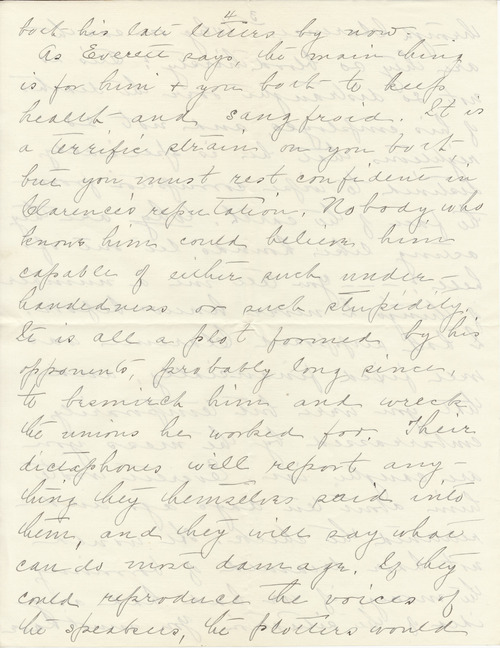 4
both his late letters by now.
As Everett says the main thing
is for him + you both to keep
health and sang froid. It is
a terrific strain on you both
but you must rest confident in
Clarence's reputation. Nobody who
knows him could believe him
capable of either such under-
handedness or such stupidity.
It is all a plot formed by his
opponents, probably long since,
to besmirch him and wreck
the unions he worked for. Their
dictaphones will report any-
thing they themselves said into
them, and they will say what
can do most damage. If they
could reproduce the voices of
the speakers, the plotters would